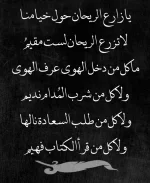 يا زارع الريحان حول خيامنا
لا تزرع الريحان لست مقيمُ
ما كل من دخل الهوى عرف الهوى
ولا كل من شرب المُدام نديم
ولا كل من طلب السعادة نالها
ولا كل من قرأ الكتاب فهيم